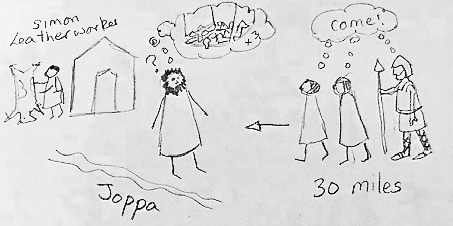 Simon
Leatherworker
?
x3
Come!
Joppa
30 miles